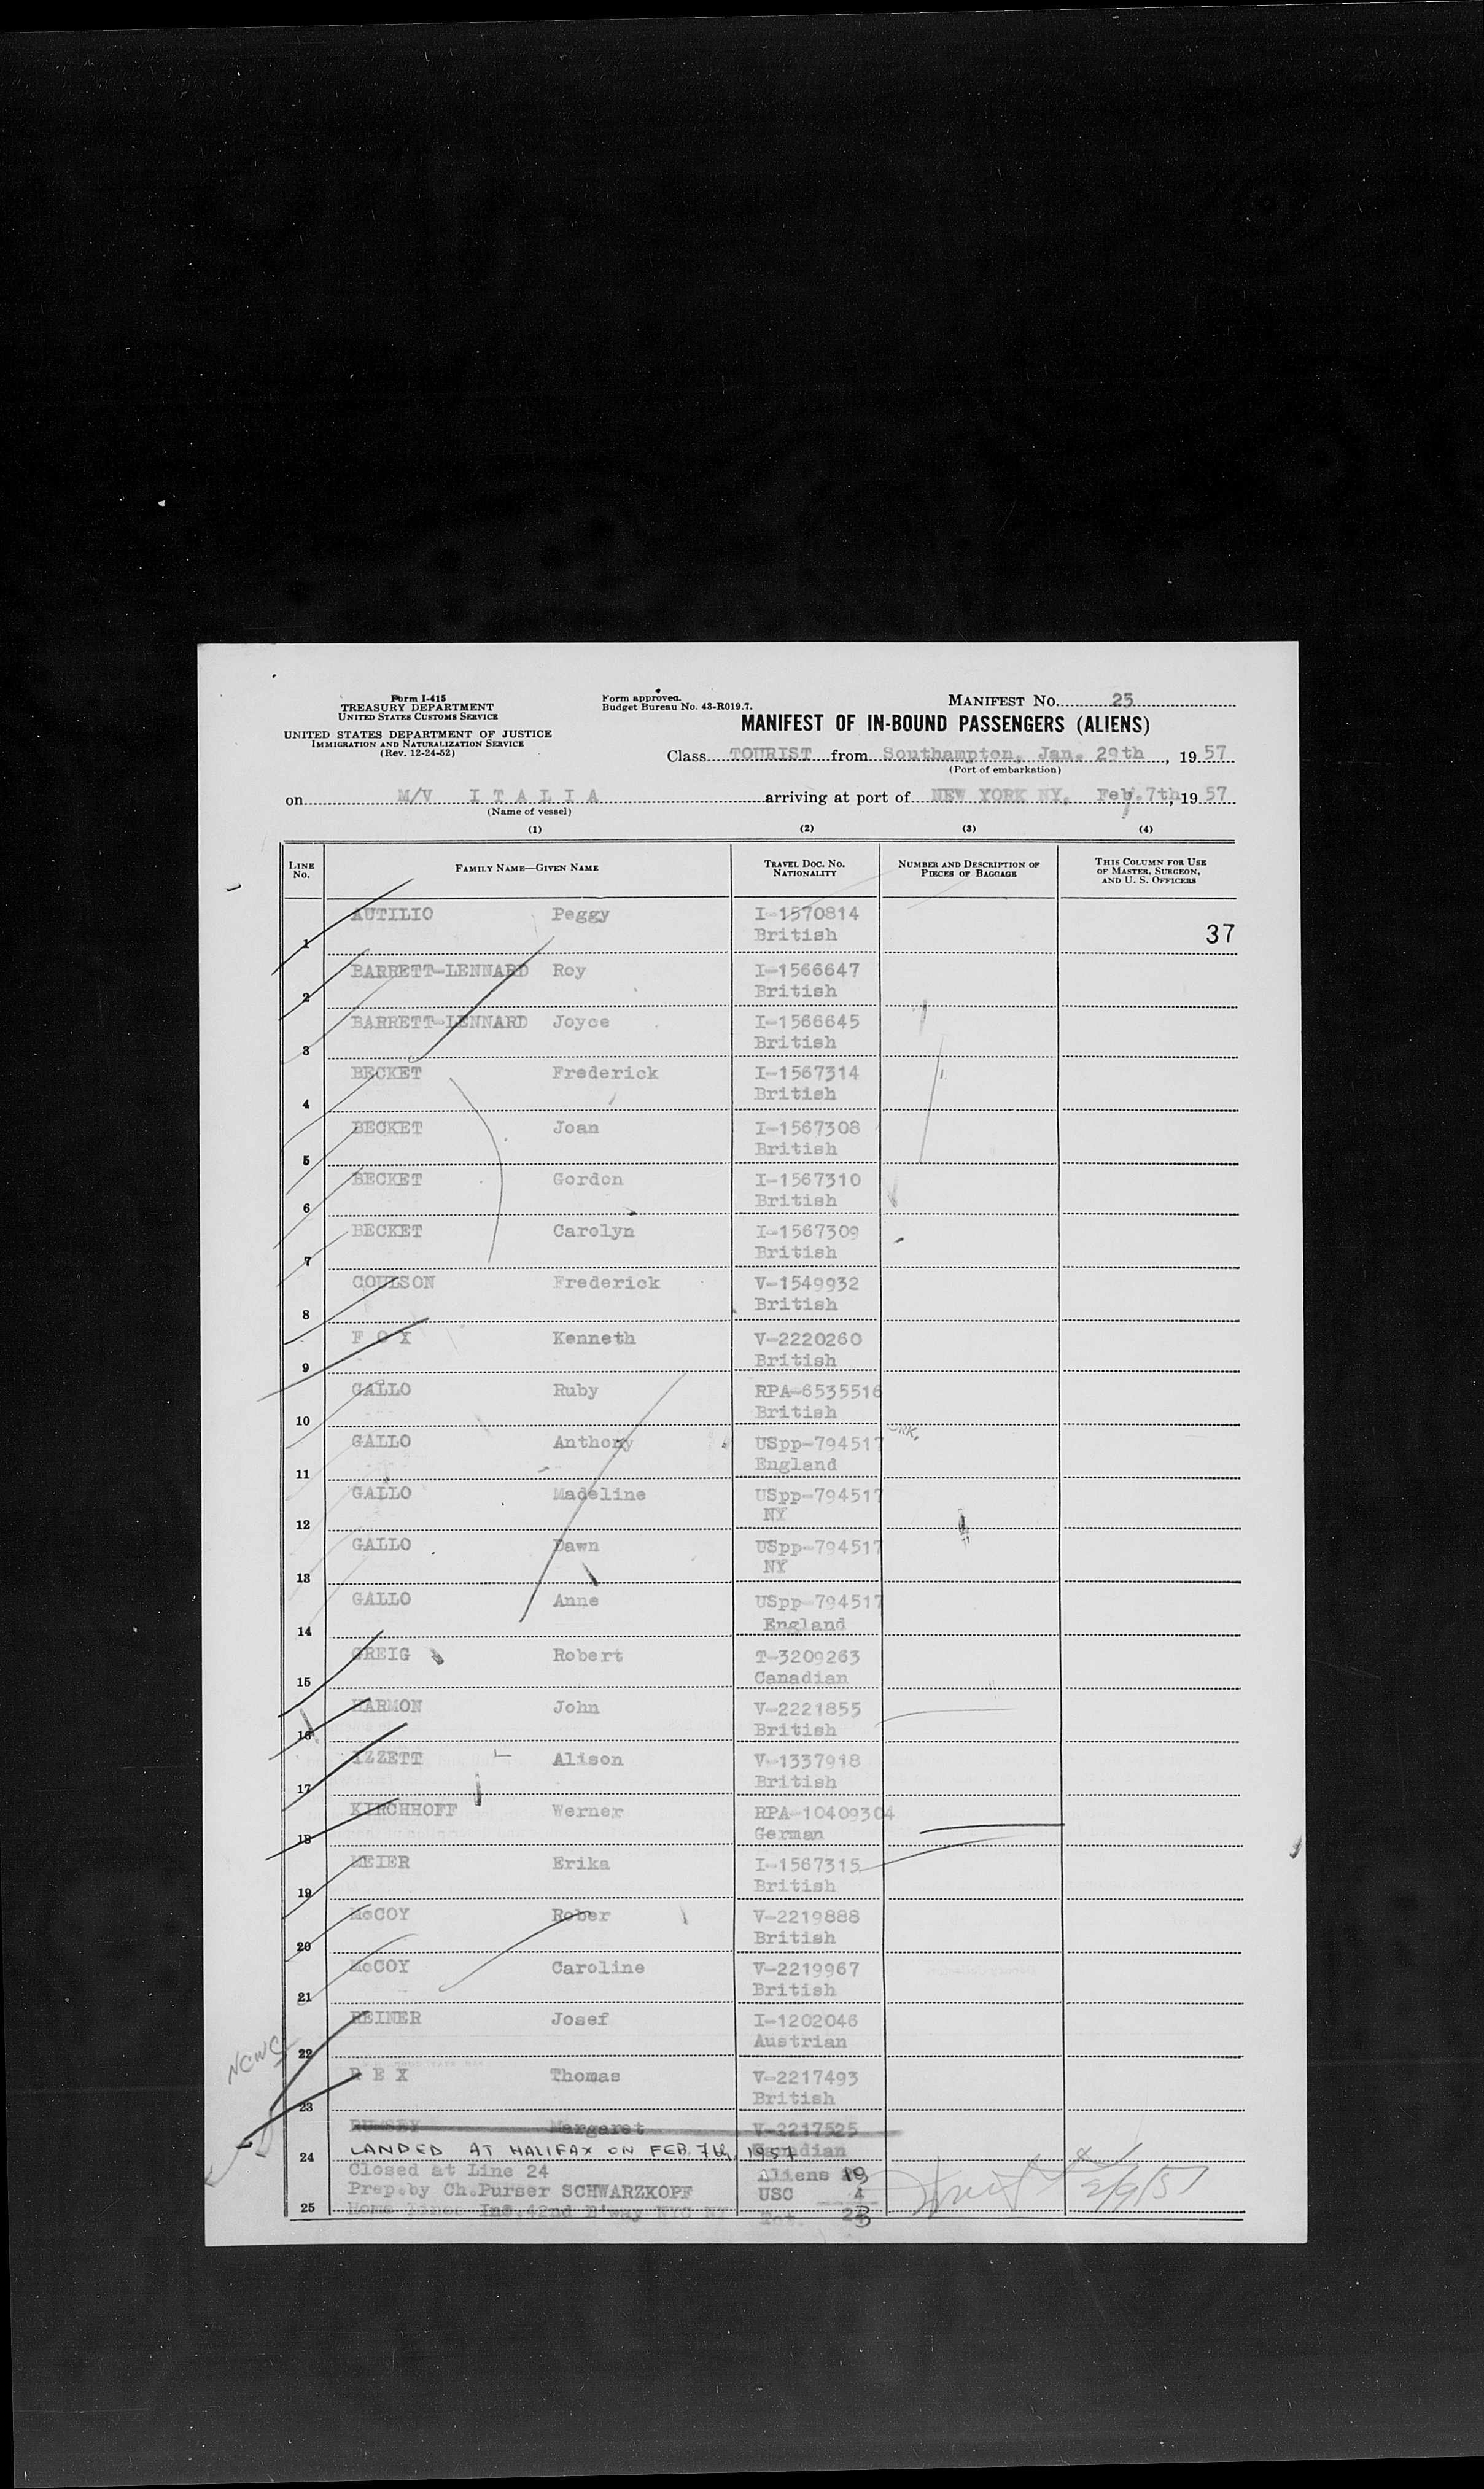 Form I-415
TREASURY DEPARTMENT
UNITED STATES CUSTOMS SERVICE
UNITED STATES DEPARTMENT OF JUSTICE
IMMIGRATION AND NATURALIZATION SERVICE
(Rev. 12-24-52)
Form approved.
Budget Bureau No. 43-R019.7.
MANIFEST NO. 25
MANIFEST OF IN-BOUND PASSENGERS (ALIENS)
Class TOURIST from Southampton, Jan. 29th, 1957
(Port of embarkation)
on M/V I T A L I A arriving at port of NEW YORK NY. Feb. 7th, 1957
(Name of vessel)
(1) (2) (3) (4)
LINE NO. FAMILY NAME—GIVEN NAME TRAVEL DOC. NO. NATIONALITY NUMBER AND DESCRIPTION OF PIECES OF BAGGAGE THIS COLUMN FOR USE OF MASTER, SURGEON, AND U. S. OFFICERS
AUTILIO Peggy I-1570814
1 British 37
BARRETT-LENNARD Roy I-1566647
2 British
BARRETT-LENNARD Joyce I-1566645
3 British
BECKET Frederick I-1567314
4 British
BECKET Joan I-1567308
5 British
BECKET Gordon I-1567310
6 British
BECKET Carolyn I-1567309
7 British
COULSON Frederick V-1549932
8 British
F O X Kenneth V-2220260
9 British
GALLO Ruby RPA-6535516
10 British
GALLO Anthony USpp-794517
11 England
GALLO Madeline USpp-794517
12 NY
GALLO Dawn USpp-794517
13 NY
GALLO Anne USpp-794517
14 England
GREIG Robert T-3209263
15 Canadian
HARMON John V-2221855
16 British
IZZETT Alison V-1337918
17 British
KIRCHHOFF Werner RPA-10409304
18 German
MEIER Erika I-1567315
19 British
McCOY Rober V-2219888
20 British
McCOY Caroline V-2219967
21 British
REINER Josef I-1202046
22 Austrian
NCWC
R E X Thomas V-2217493
23 British
RUMSEY Margaret V-2217525
24 LANDED AT HALIFAX ON FEB. 7th, 1957 Canadian
Closed at Line 24 Aliens 19
Prep.by Ch.Purser SCHWARZKOPF USC 4
25 Home Lines Inc.42nd B'way NYC NY Tot. 23
2/9/57